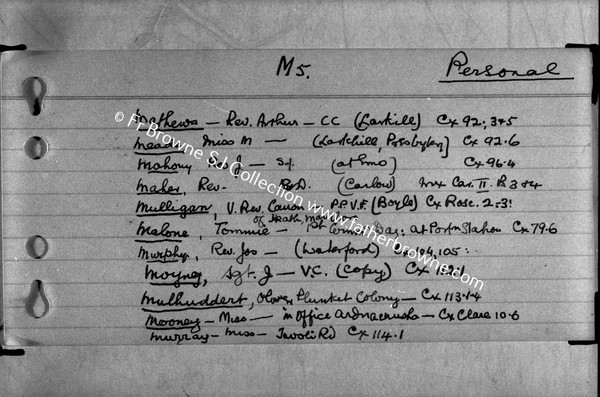 M5. Personal
Mathews — Rev. Arthur — CC (Larkill) Cx 92: 3+5
Meade Miss M — (Larkhill, Presbytery) Cx 92.6
Mahony Rev J — S.J. Cx 96.4
Maher, Rev. — (Carlow) Car. II. 3+4
Mulligan, V. Rev. Canon P.P. V.F. (Boyle) Cx Rosc. 2:3:
of Rath
Malone, Tommie — 1st Comm. Day: at Portn Station Cx 79.6
Murphy, Rev. Jos — (Waterford) 104, 105:
Moyney, Sgt. J — V.C. (Copy) Cx
Mulhuddert, Oliver Plunket Colony — Cx 113.1+4
Mooney — Miss — in Office Ardnacrusha — Cx Clare 10.6
Murray — Miss — Tivoli Rd Cx 114.1
© Fr Browne S.J. Collection www.fatherbrowne.com